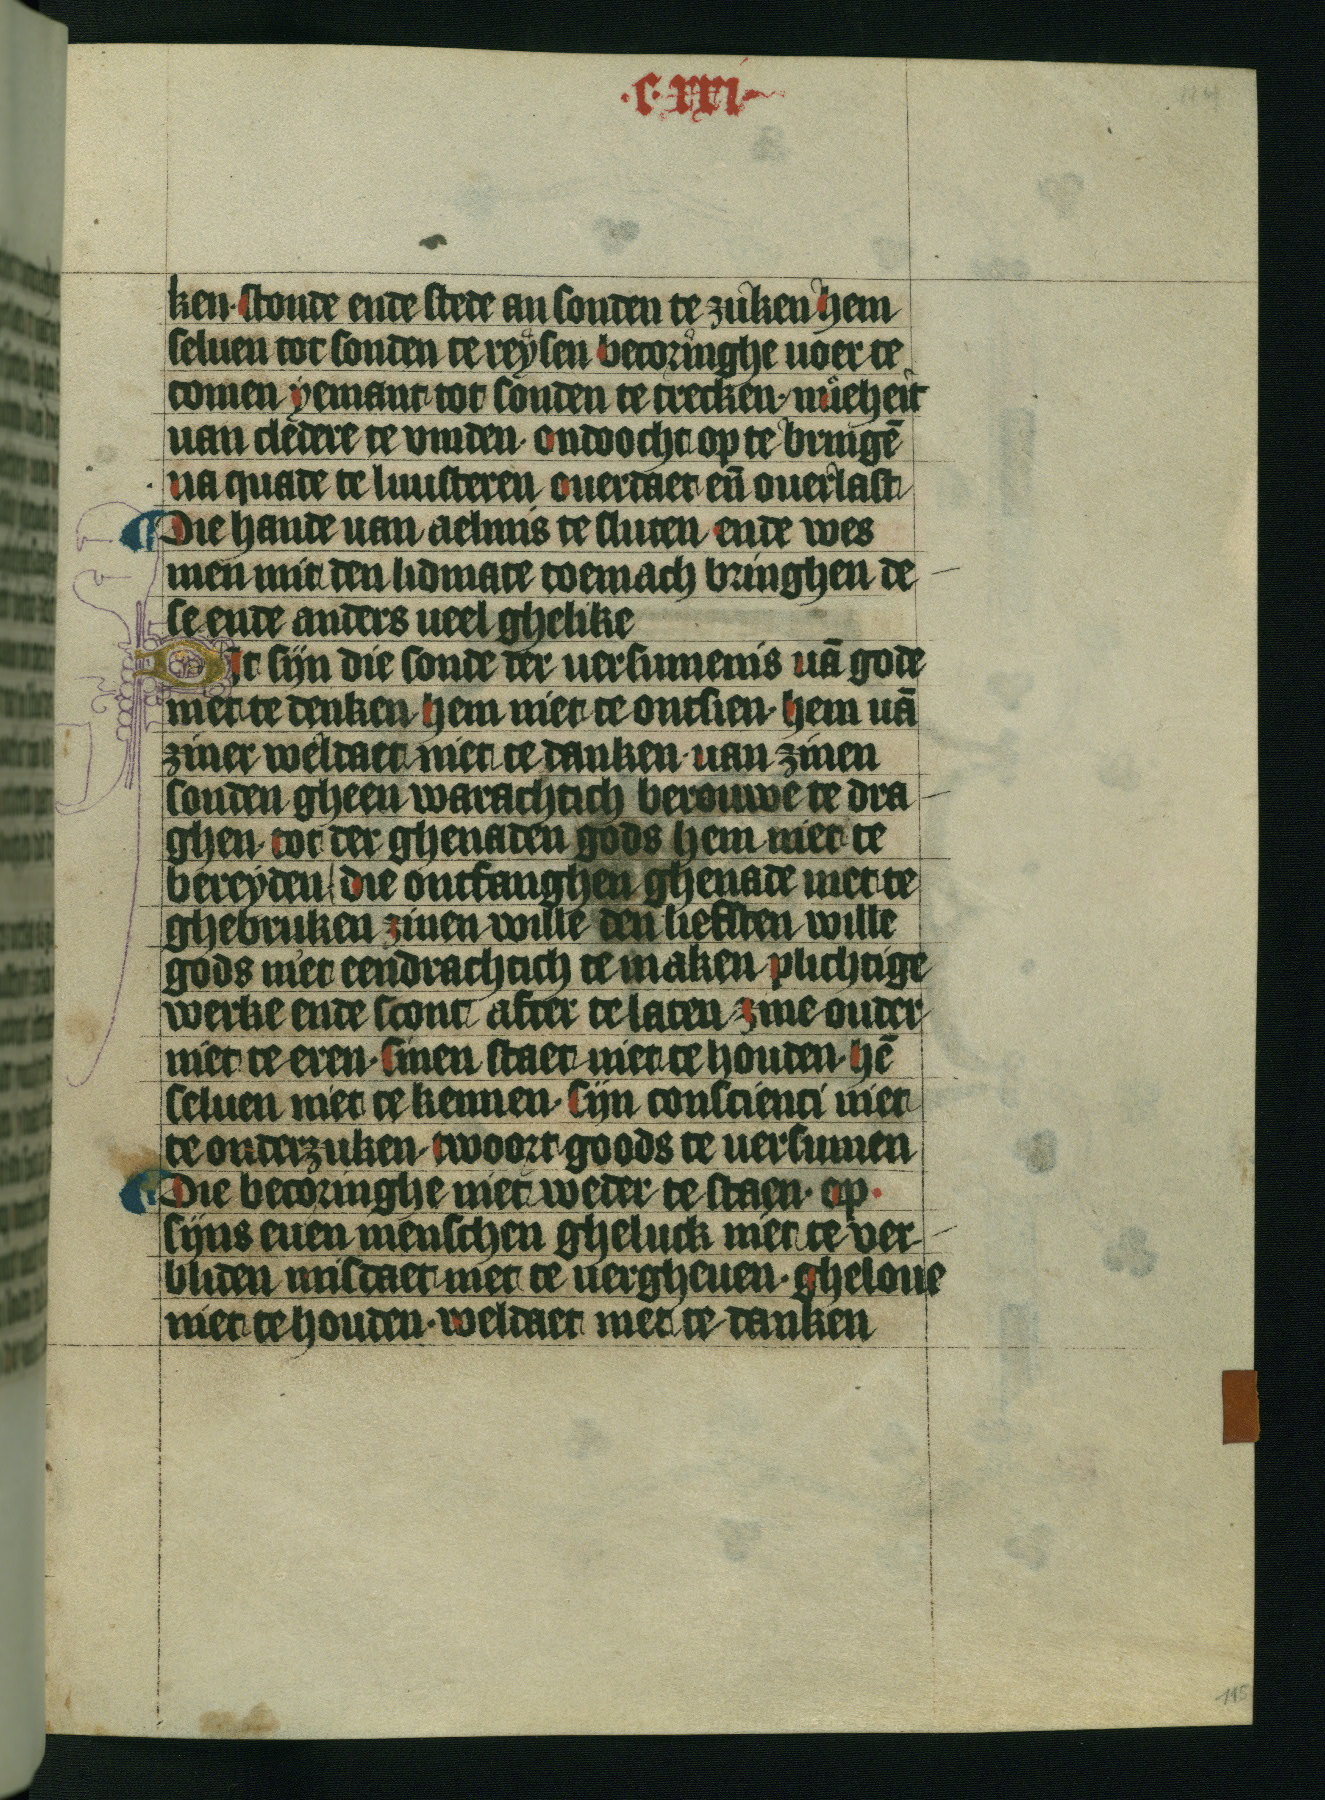 ·c·xxi·
ken· stonde ende stede an sonden te zuken hem
seluen tot sonden te reysen becoringhe uoer te
comen yemant tot sonden te trecken· nuͦeheit
uan cledere te vinden· ondoocht op te bringē
na quade te luusteren ouerdaet eñ ouerlast
Die hande uan aelmis te sluten ende wes
men mit den lidmate toemach bringhen de
se ende anders ueel ghelike
It sijn die sonde der uersumenis uā gode
niet te denken hem niet te ontsien· hem uā
ziner weldaet niet te danken· uan zinen
sonden gheen warachtich berouwe te dra
ghen· tot der ghenaden gods hem niet te
bereyden die ontfanghen ghenade niet te
ghebruken zinen wille den liefsten wille
gods niet eendrachtich te maken plichtige
werke ende scont after te laten zine ouder
niet te eren· sinen staet niet te houden· hē
seluen niet te kennen· sijn conscienci niet
te onderzuken· twoort goods te uersumen
Die becoringhe niet weder te staen· op·
sijns euen menschen gheluck niet te ver
bliden misdaet niet te uergheuen· gheloue
niet te houden· weldaet niet te danken
114
115